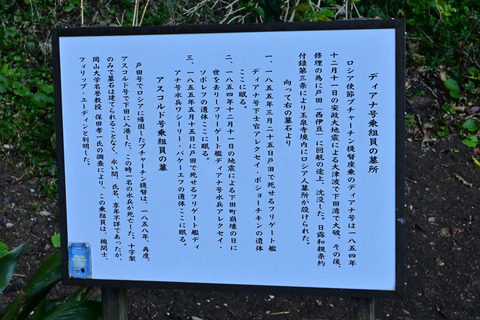 ディアナ号乗組員の墓所
ロシア使節プチャーチン提督座乗のディアナ号は一八五四年
十二月十一日の安政大地震による大津波で下田湾で大破、その後、
修理の為に戸田（西伊豆）に回航の途上、沈没した。日露和親条約
付録第三条により玉泉寺境内にロシア人墓所が設けられた。
向って右の墓石より
一、一八五五年三月二十五日戸田で死せるフリゲート艦
ディアナ号下士官アレクセイ・ポショーチキンの遺体
ここに眠る。
二、一八五四年十二月十一日の地震による下田町崩壊の日に
世を去りしフリゲート艦ディアナ号水兵アレクセイ・
ソボレフの遺体ここに眠る。
三、一八五五年五月十五日に戸田で死せるフリゲート艦ディ
アナ号水兵ワシーリー・バケーエフの遺体ここに眠る。
アスコルド号乗組員の墓
戸田号でロシアに帰国したプチャーチン提督は、一八五八年、再度、
アスコルド号で下田に入港した。この時一名の水兵が死亡した。十字架
のみで墓石は建てられることなく、永い間、氏名、享年不詳であったが、
岡山大学名誉教授 保田孝一氏の調査により、この乗組員は、機関士、
フィリップ・ユーディンと判明した。